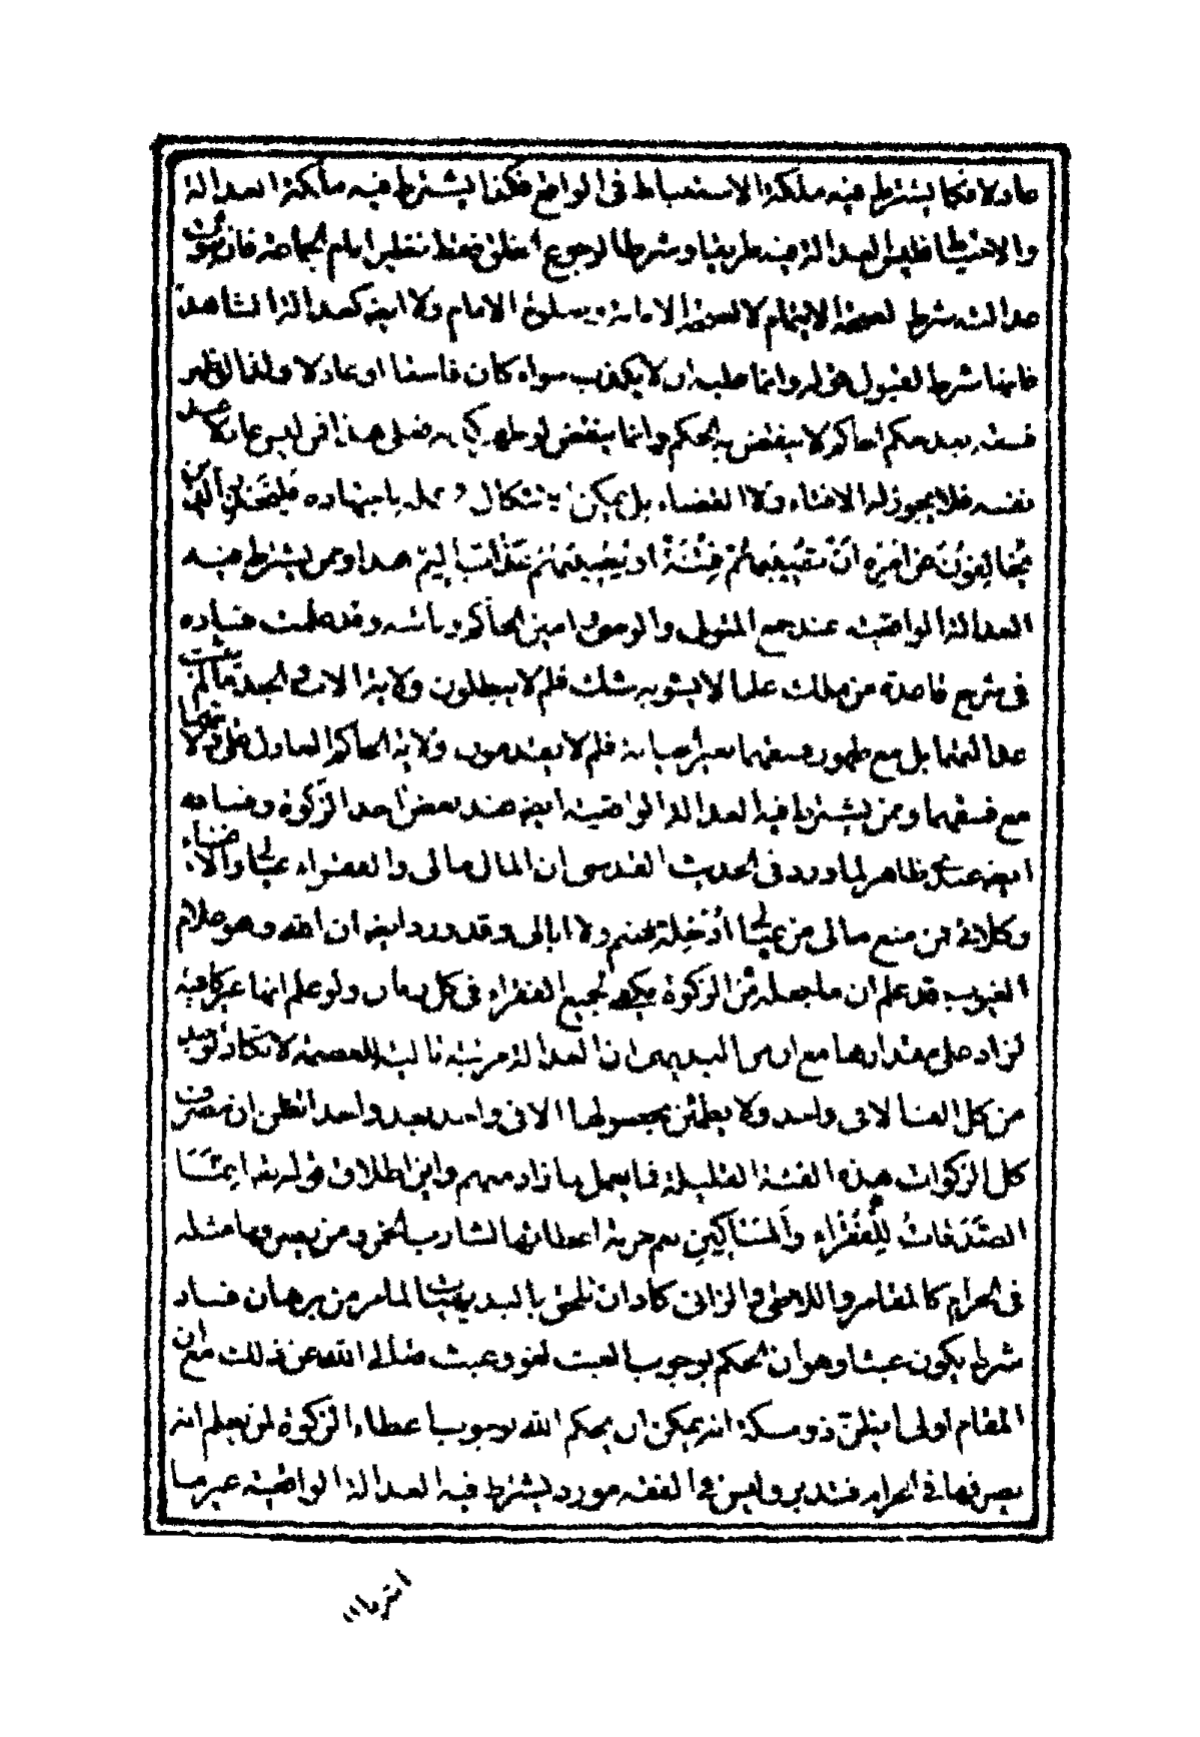 عادلا فكما يشترط فيه ملكة الاستنباط فى الواقع فكذا يشترط فيه ملكة العدالة
والاحتياط فليس العدالة فيه طريقيا وشرطا لرجوع الخلق فقط نظير امام الجماعة فان
عدالته شرط لصحة الايتمام لا لصحة الامامة وصلوة الامام ولا ايضا كعدالة الشاهد
فانها شرط لقبول قوله وانما عليه ان لا يكذب سواء كان فاسقا او عادلا ولذا لو ظهر
فسقه بعد حكم الحاكم لا ينتقض به الحكم وانما ينتقض لو ظهر فعلى هذا فمن ليس عادلا عند
نفسه فلا يجوز له الافتاء ولا القضاء بل يمكن عمله باجتهاده فليحذر الذين
يخالفون عن امره ان تصيبهم فتنة او يصيبهم عذاب اليم هذا وممن يشترط فيه
العدالة الواقعية عند جمع المتولى والوصى وامين الحاكم ونائبه وقد علمت فساده
فى شرح قاعدة من ملك علما لا يشوبه شك فلم لا يبطلون ولاية الاب والجد ما لم يثبت
عدالتهما بل مع ظهور فسقهما فلم لا يقدمون ولاية الحاكم العادل على ولايتهما
مع فسقهما وممن يشترط فيه العدالة الواقعية ايضا عند بعض اخذ الزكوة وفساده
ايضا ظاهر لما ورد فى الحديث القدسى ان المال مالى والفقراء عيالى والاغنياء
وكلائى فمن منع مالى من عيالى ادخله جهنم ولا ابالى وقد ورد ايضا ان الله وهو علام
الغيوب قد علم ان ما جعله من الزكوة يكفى لجميع الفقراء فى كل زمان ولو علم انها غير كافية
لزاد على مقدارها مع ان من البديهى ان العدالة مرتبة تالية للعصمة لا تكاد توجد
من كل الف الا فى واحد ولا يطمئن بحصولها الا فى واحد بعد واحد انظن ان تصرفون
كل الزكوات هذه الفئة القليلة فما يعمل بما زاد منهم واين اطلاق قوله تعالى انما
الصدقات للفقراء والمساكين نعم حرمة اعطائها لشارب الخمر ومن يصرفها مثله
فى الحرام كالمقامر واللاهى والزانى كاد ان تلحق بالبديهيات لما مر من برهان فساد
شرط يكون عبثا وهو ان الحكم بوجوب العبث لغو وعبث تعالى الله عن ذلك مع ان
المقام اولى ايظن ذو مسكة انه يمكن ان يحكم الله بوجوب اعطاء الزكوة لمن يعلم انه
يصرفها فى الحرام فتدبر وليس فى الفقه مورد يشترط فيه العدالة الواقعية غير ما